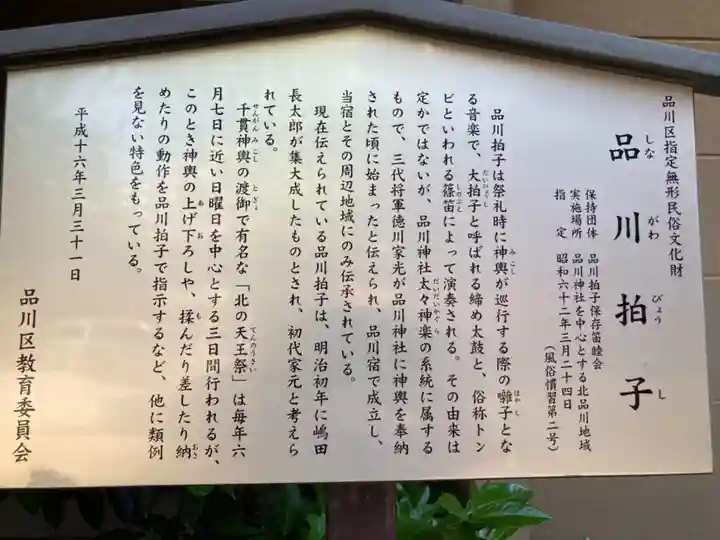 品川区指定無形民俗文化財
品川拍子
しながわびょうし
保持団体　品川拍子保存笛睦会
実施場所　品川神社を中心とする北品川地域
指定　昭和六十二年三月二十四日
（風俗慣習第二号）
品川拍子は祭礼時に神輿が巡行する際の囃子とな
る音楽で、大拍子と呼ばれる締め太鼓と、俗称トン
ビといわれる篠笛によって演奏される。その由来は
定かではないが、品川神社太々神楽の系統に属する
もので、三代将軍徳川家光が品川神社に神輿を奉納
された頃に始まったと伝えられ、品川宿で成立し、
当宿とその周辺地域にのみ伝承されている。
現在伝えられている品川拍子は、明治初年に嶋田
長太郎が集大成したものとされ、初代家元と考えら
れている。
千貫神輿の渡御で有名な「北の天王祭」は毎年六
月七日に近い日曜日を中心とする三日間行われるが、
このとき神輿の上げ下ろしや、揉んだり差したり納
めたりの動作を品川拍子で指示するなど、他に類例
を見ない特色をもっている。
平成十六年三月三十一日
品川区教育委員会